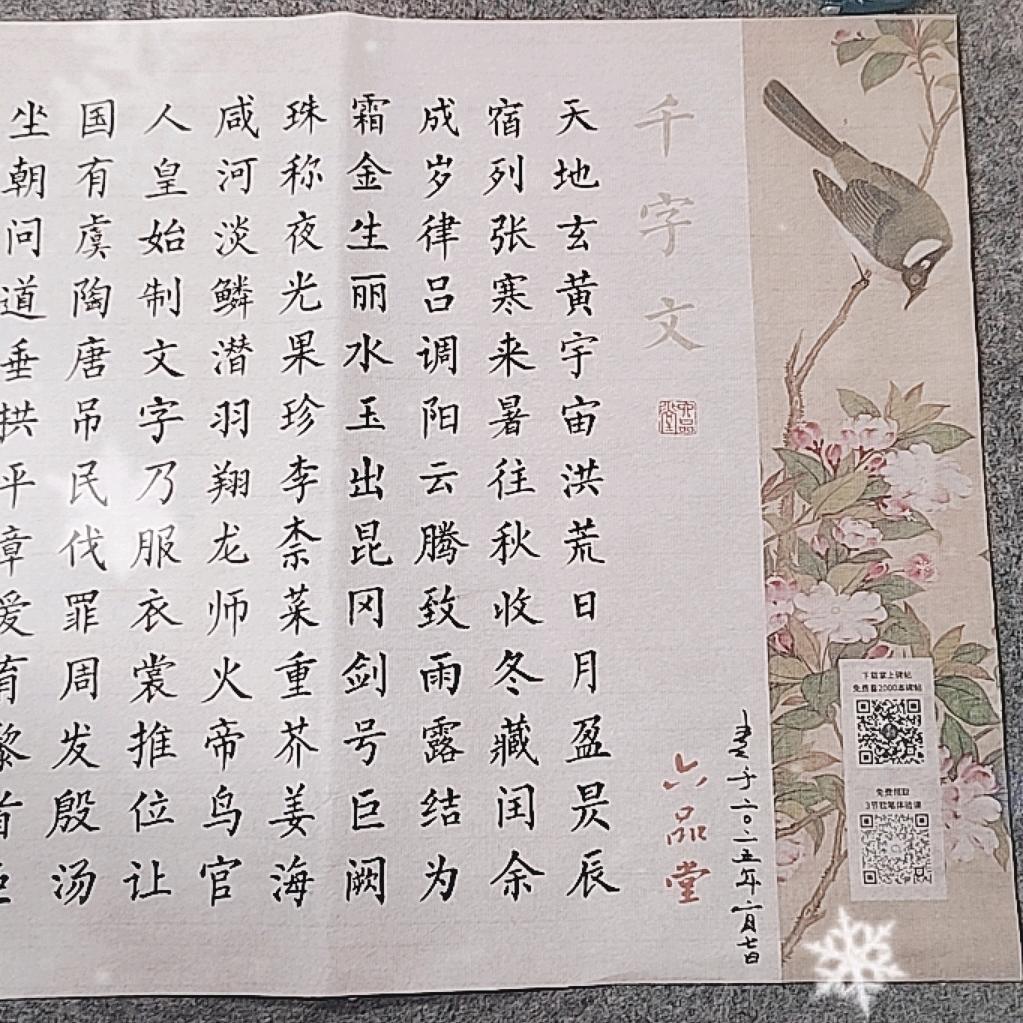 千字文
六品堂
六品堂
天地玄黄宇宙洪荒日月盈昃辰
宿列张寒来暑往秋收冬藏闰余
成岁律吕调阳云腾致雨露结为
霜金生丽水玉出昆冈剑号巨阙
珠称夜光果珍李柰菜重芥姜海
咸河淡鳞潜羽翔龙师火帝鸟官
人皇始制文字乃服衣裳推位让
国有虞陶唐吊民伐罪周发殷汤
坐朝问道垂拱平章爱育黎首臣
书于二〇二五年二月七日
下载掌上碑帖
免费看2000本碑帖
免费领取
3节控笔体验课